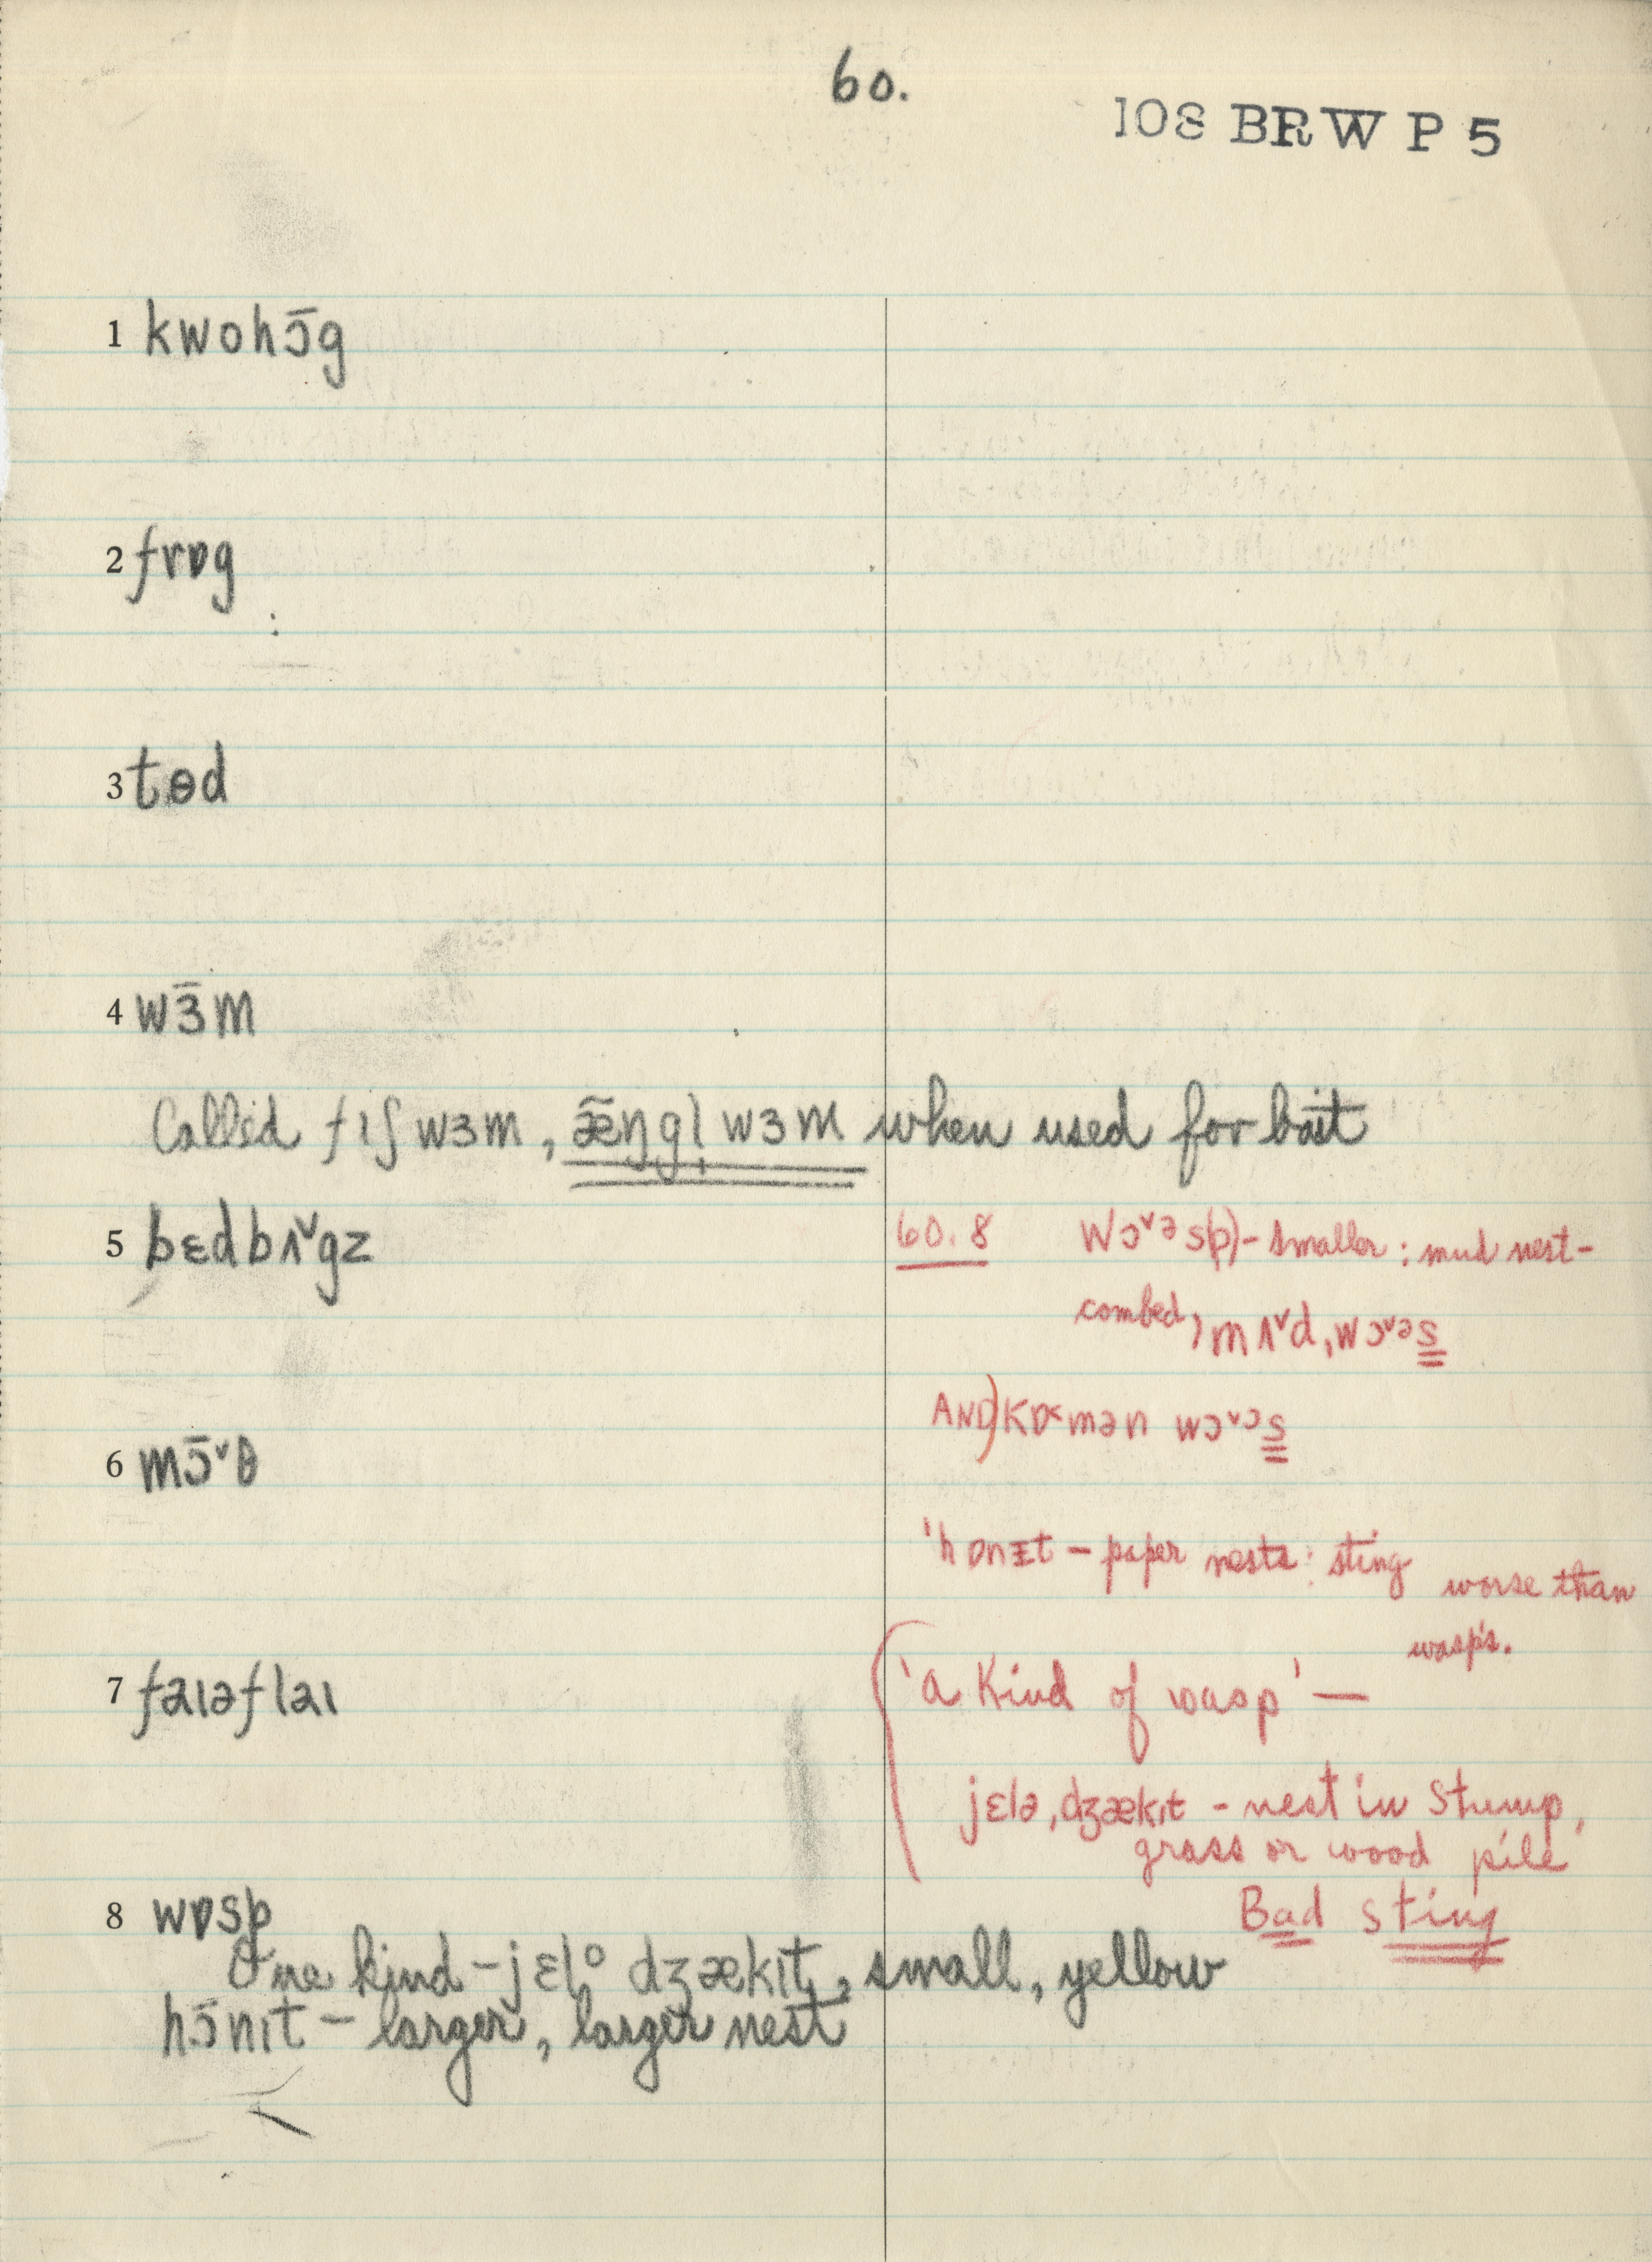 60.
108 BRW P 5
1 kwohɔ̄g
2 frɒg
3 tɵd
4 wɜ̄m
Called fıʃ wɜm, æ̃ŋgl̩ wɜm when used for bait
5 bɛdbʌ˅gz
6 mɔ̄˅θ
7 faıəflaı
8 wɒsp
One kind - jɛl° dʒækıt, small, yellow
hɔ̄nıt - larger, larger nest
60.8 Wɔ˅əs(p) - smaller : mud nest -
combed, mʌ˅dˌwɔ˅əs
AND) Kɒ˂mən wɔ˅ɔs
ˈhɒnɪt - paper nests : sting
worse than
wasp's.
'a Kind of wasp' —
jɛləˌdʒækıt - nest in stump,
grass or wood pile
Bad sting